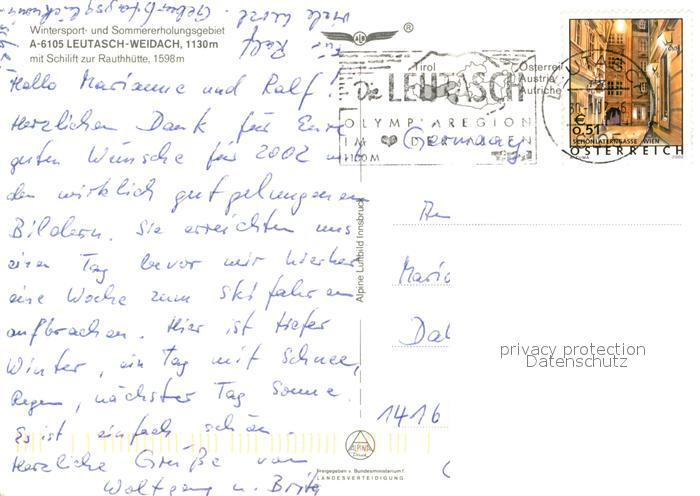 viele liebe Geburtstagsglückwünsche
für Ralf
Wintersport- und Sommererholungsgebiet
A-6105 LEUTASCH-WEIDACH, 1130 m
mit Schilift zur Rauthhütte, 1598 m
®
Tirol
Österreich
Austria
Autriche
Die LEUTASCH
OLYMPIAREGION
IM HERZEN DER ALPEN
1130 M
€ 0,51
SCHÖNLATERNGASSE WIEN
ÖSTERREICH
Hallo Marianne und Ralf!
Herzlichen Dank für Eure
guten Wünsche für 2002 mit
den wirklich gut gelungenen
Bildern. Sie erreichten uns
einen Tag bevor wir hierher
eine Woche zum Skifahren
aufbrachen. Hier ist tiefer
Winter, ein Tag mit Schnee,
Regen, nächster Tag Sonne.
Es ist einfach schön.
Herzliche Grüße von
Wolfgang u. Brit
Alpine Luftbild Innsbruck
ALPINE
Freigegeben v. Bundesministerium f.
LANDESVERTEIDIGUNG
Germany
An
Maria
Dal
1416
privacy protection
Datenschutz